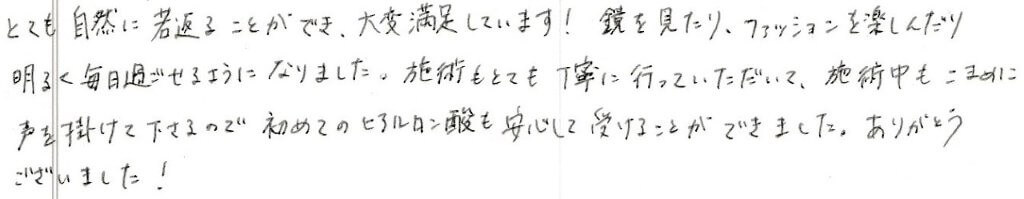 とても自然に若返ることができ、大変満足しています！ 鏡を見たり、ファッションを楽しんだり
明るく毎日過ごせるようになりました。施術もとても丁寧に行っていただいて、施術中もこまめに
声を掛けて下さるので初めてのヒアルロン酸も安心して受けることができました。ありがとう
ございました！